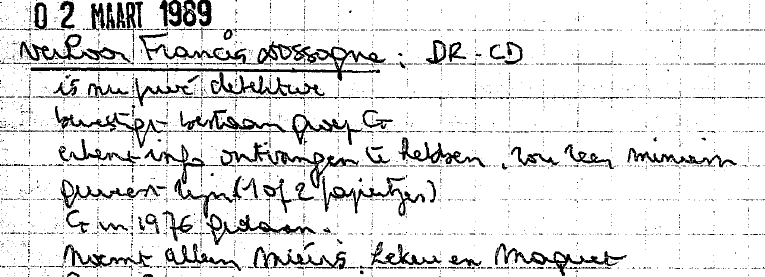 02 MAART 1989
Verhoor Francis Dossogne : DR-CD
is nu privé detektive
bevestigt bestaan groep G
erkent info ontvangen te hebben, zou zeer miniem
geweest zijn (1 of 2 papiertjes)
G in 1976 gedaan.
Noemt alleen Mievis, Lekeu en Moquet